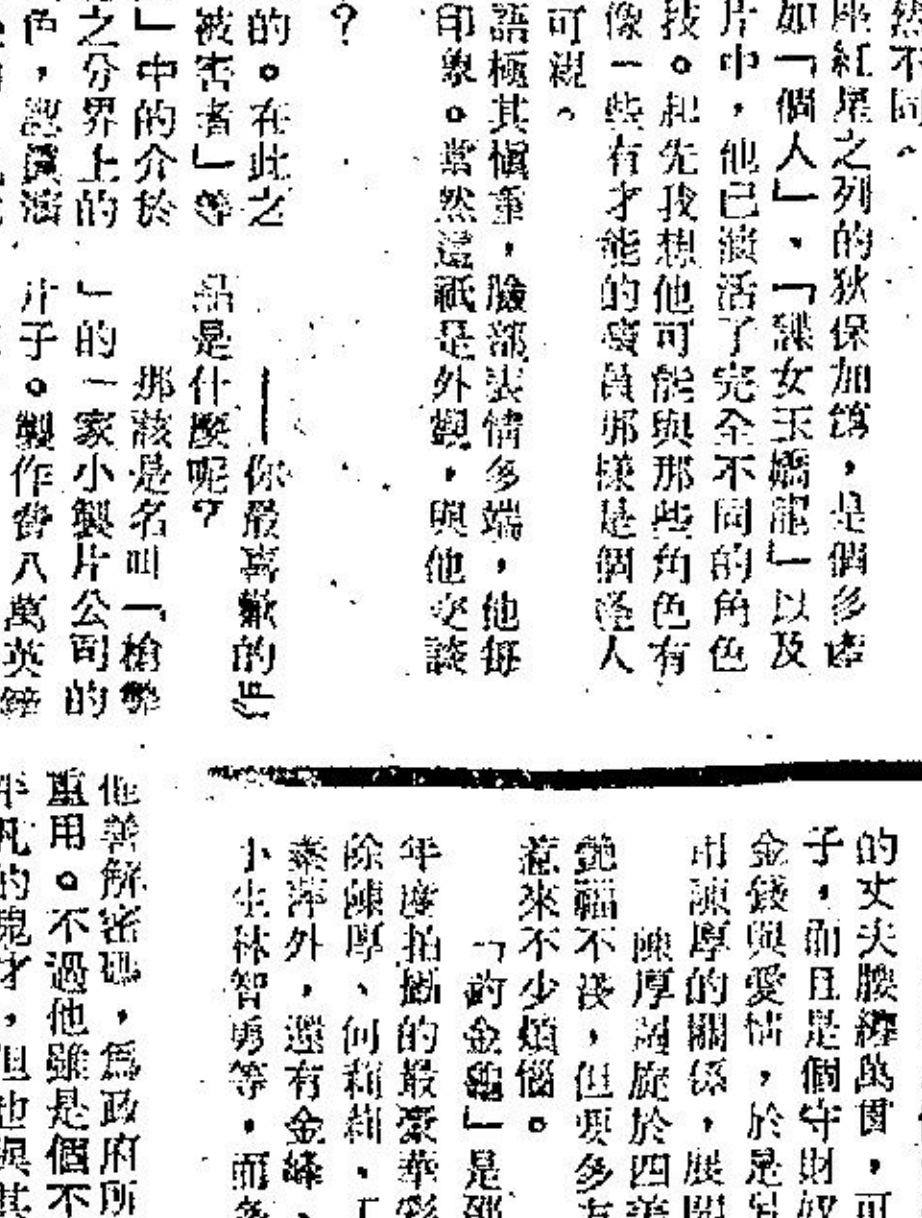 然不同
座紅星之列的狄保加第，是個多產
如「個人」、「黑女玉嬌龍」以及
片中，他已演活了完全不同的角色
技。起先我想他可能與那些角色有
像一些有才能的演員那樣是個迷人
可親。
語極其慎重，臉部表情多端，他每
印象。當然這祇是外觀，與他交談
？
的。在此之
被害者」等
」中的介於
之分界上的
色，認真演
——你最喜歡的作
品是什麼呢？
那該是名叫「槍弊
」的一家小製片公司的
片子。製作費八萬英鎊
的丈夫腰纏萬貫，可
子，而且是個守財奴
金錢與愛情，於是另
用陳厚的關係，展開
陳厚周旋於四美
艷福不淺，但要多方
惹來不少煩惱。
「釣金龜」是邵
年度拍攝的最豪華彩
除陳厚、何莉莉、丁
秦萍外，還有金峰、
小生林智勇等，而各
他善解密碼，為政府所
重用。不過他雖是個不
平凡的鬼才，但也與其